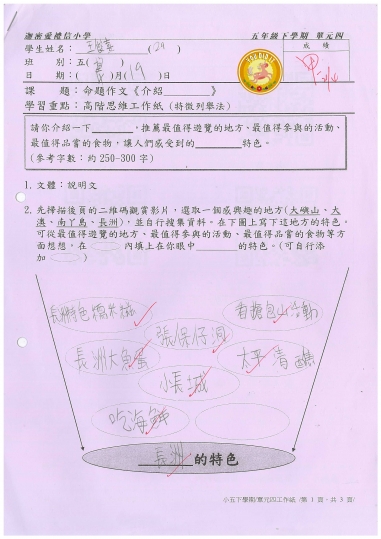 迦密愛禮信小學
五年級下學期 單元四
學生姓名： (24)
成績
班 別：五( )
日 期：( )月(19)日
課 題：命題作文《介紹________》
學習重點：高階思維工作紙 (特徵列舉法)
請你介紹一下________，推薦最值得遊覽的地方、最值得參與的活動、
最值得品嘗的食物，讓人們感受到的________特色。
(參考字數：約 250-300 字)
1. 文體：說明文
2. 先掃描後頁的二維碼觀賞影片，選取一個感興趣的地方(大嶼山、大
澳、南丫島、長洲)，並自行搜集資料。在下圖上寫下這地方的特色。
可從最值得遊覽的地方、最值得參與的活動、最值得品嘗的食物等方
面想想，在 內填上在你眼中________的特色。(可自行添
加 )
長洲特色糯米糍
搶包山活動
張保仔洞
長洲大魚蛋
太平清醮
小長城
吃海鮮
長洲的特色
小五下學期/單元四工作紙 /第 1 頁，共 3 頁/